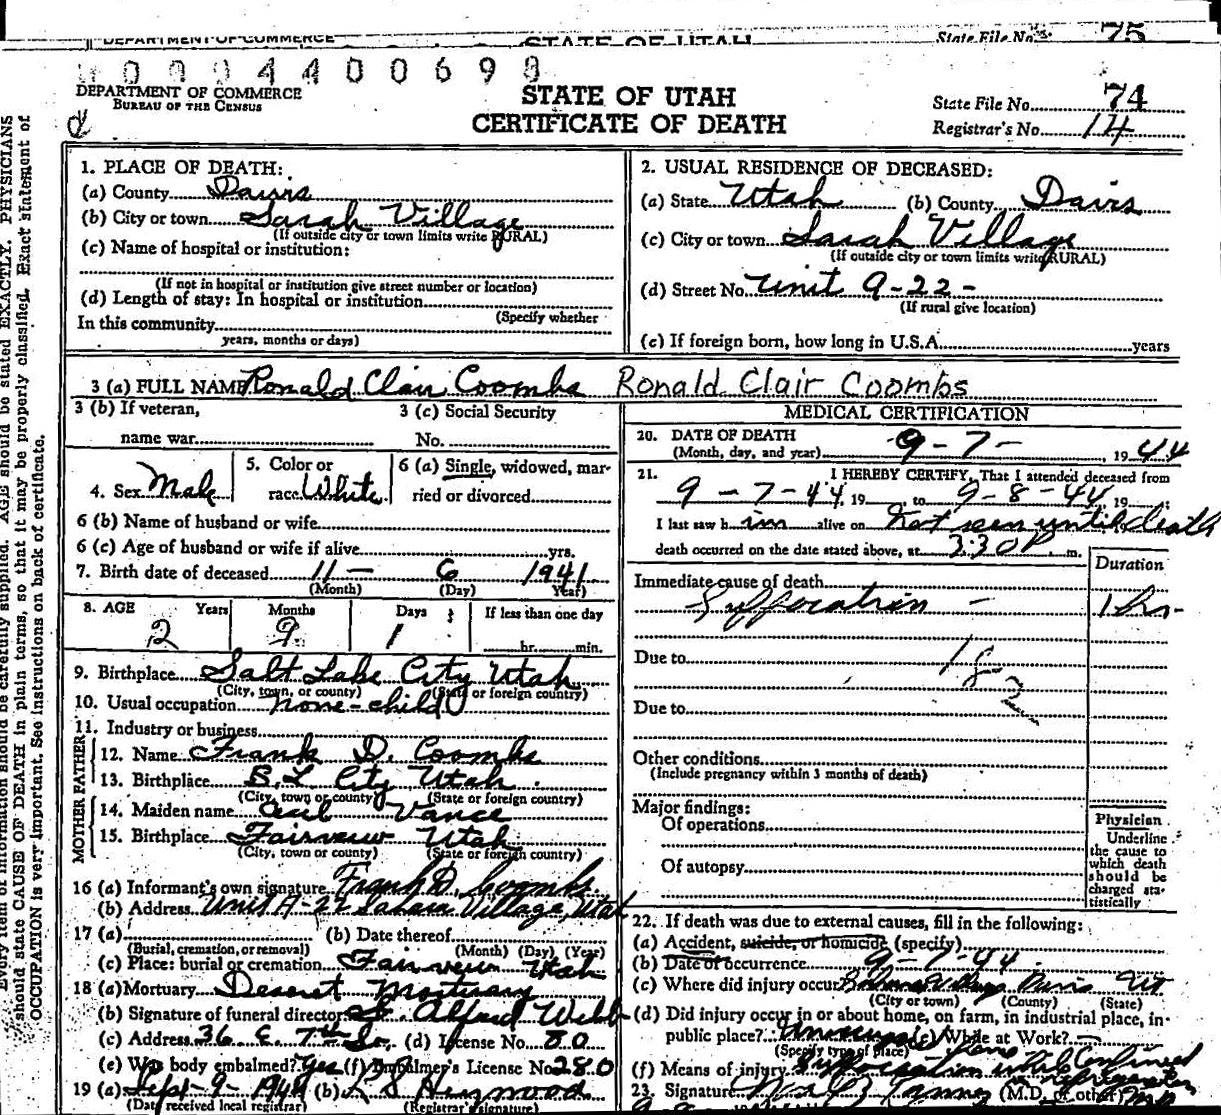 DEPARTMENT OF COMMERCE STATE OF UTAH State File No. 75
0 0 9 4 4 0 0 6 9 8
DEPARTMENT OF COMMERCE
BUREAU OF THE CENSUS
STATE OF UTAH
CERTIFICATE OF DEATH
State File No. 74
Registrar's No. 14
Every item of information should be carefully supplied. AGE should be stated EXACTLY. PHYSICIANS
should state CAUSE OF DEATH in plain terms, so that it may be properly classified. Exact statement of
OCCUPATION is very important. See instructions on back of certificate.
1. PLACE OF DEATH:
(a) County Davis
(b) City or town Sarah Village
(If outside city or town limits write RURAL)
(c) Name of hospital or institution:
(If not in hospital or institution give street number or location)
(d) Length of stay: In hospital or institution
(Specify whether
In this community
years, months or days)
2. USUAL RESIDENCE OF DECEASED:
(a) State Utah (b) County Davis
(c) City or town Sarah Village
(If outside city or town limits write RURAL)
(d) Street No. Unit 9-22-
(If rural give location)
(e) If foreign born, how long in U.S.A. years
3 (a) FULL NAME Ronald Clair Coombs Ronald Clair Coombs
3 (b) If veteran,
name war
3 (c) Social Security
No.
4. Sex Male
5. Color or
race White
6 (a) Single, widowed, mar-
ried or divorced
6 (b) Name of husband or wife
6 (c) Age of husband or wife if alive yrs.
7. Birth date of deceased 11 - 6 1941
(Month) (Day) Year)
8. AGE Years Months Days If less than one day
2 9 1 hr. min.
9. Birthplace Salt Lake City Utah
(City, town, or county) (State or foreign country)
10. Usual occupation none-child
11. Industry or business
FATHER
12. Name Frank D. Coombs
13. Birthplace S.L. City Utah.
(City, town or county) (State or foreign country)
MOTHER
14. Maiden name Vance
15. Birthplace Fairview Utah
(City, town or county) (State or foreign country)
16 (a) Informant's own signature Frank D. Coombs.
(b) Address Unit A-22 Sahara Village, Utah
17 (a) (b) Date thereof
(Burial, cremation, or removal) (Month) (Day) (Year)
(c) Place: burial or cremation Fairview Utah
18 (a) Mortuary Deseret Mortuary
(b) Signature of funeral director Alfred Webb
(c) Address 36 E. 7th So. (d) License No. 80
(e) Was body embalmed? Yes (f) Embalmer's License No. 280
19 (a) Sept-9-1944 (b) Heywood
(Date received local registrar) (Registrar's signature)
MEDICAL CERTIFICATION
20. DATE OF DEATH
(Month, day, and year) 9-7-, 1944
21. I HEREBY CERTIFY, That I attended deceased from
9-7-44 19 , to 9-8-44, 19 ;
I last saw h im alive on Not seen until death
death occurred on the date stated above, at 3:30 P m.
Duration
Immediate cause of death
Suffocation - 1 hr-
Due to 182
Due to
Other conditions
(Include pregnancy within 3 months of death)
Major findings:
Of operations
Of autopsy
Physician
Underline
the cause to
which death
should be
charged sta-
tistically
22. If death was due to external causes, fill in the following:
(a) Accident, suicide, or homicide (specify)
(b) Date of occurrence 9-7-44.
(c) Where did injury occur Sahara Village Davis Ut
(City or town) (County) (State)
(d) Did injury occur in or about home, on farm, in industrial place, in
public place? (e) While at Work?
(Specify type of place)
(f) Means of injury Suffocation while Confined
in refrigerator
23. Signature (M.D. or other) MD